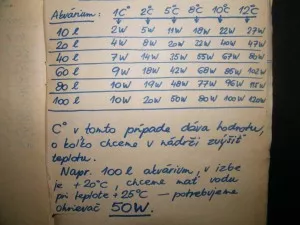 Akvárium: 1C° 2°C 5°C 8°C 10°C 12°C
10 l 2W 5W 11W 18W 22W 27W
20 l 4W 8W 20W 32W 40W 47W
40 l 7W 14W 35W 55W 67W 80W
60 l 9W 18W 42W 68W 85W 102W
80 l 10W 19W 48W 77W 96W 115W
100 l 10W 20W 50W 80W 100W 120W
C° v tomto prípade dáva hodnotu,
o koľko chceme v nádrži zvýšiť
teplotu.
Napr. 100 l akvárium, v izbe
je +20°C, chceme mať vodu
pri teplote +25°C — potrebujeme
ohrievač 50W.